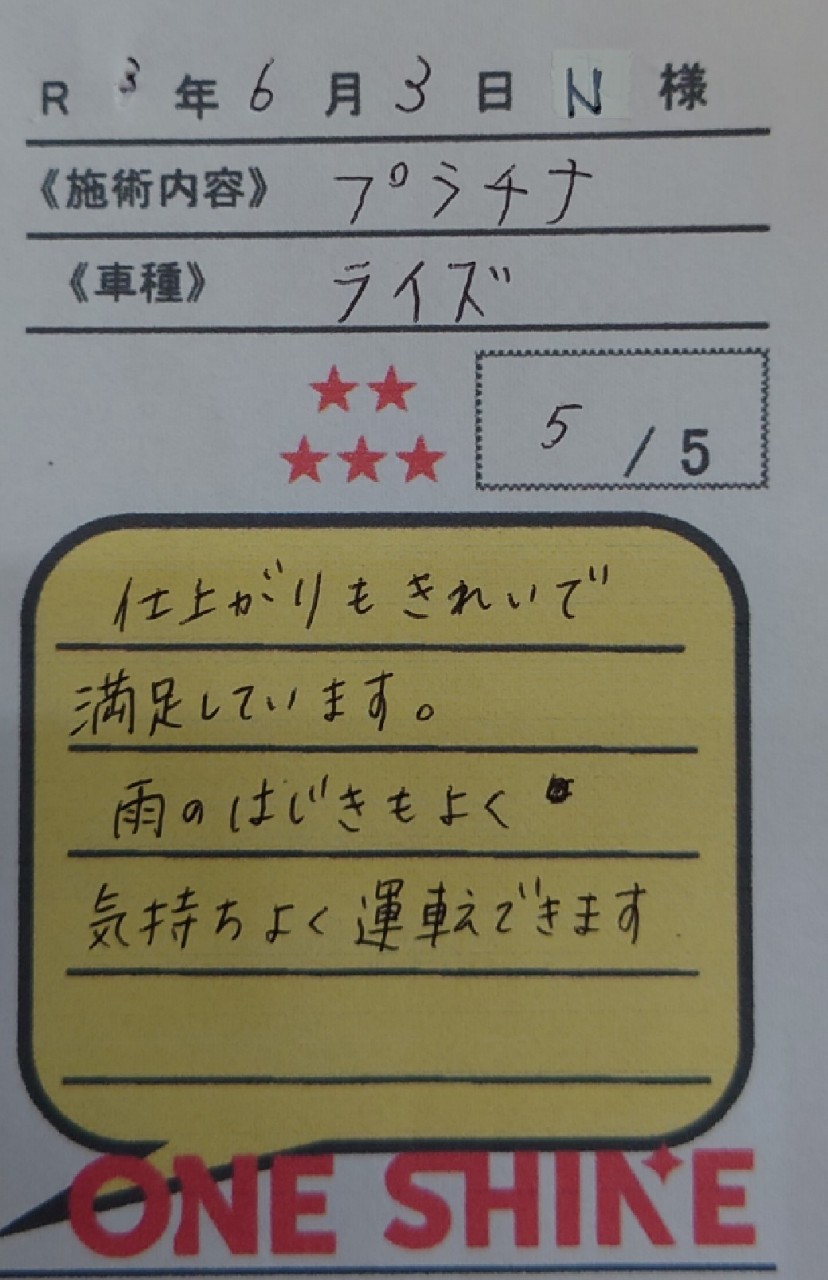 R 3 年 6 月 3 日 N 様
《施術内容》 プラチナ
《車種》 ライズ
★★
★★★
5 / 5
仕上がりもきれいで
満足しています。
雨のはじきもよく
気持ちよく運転できます
ONE SHINE